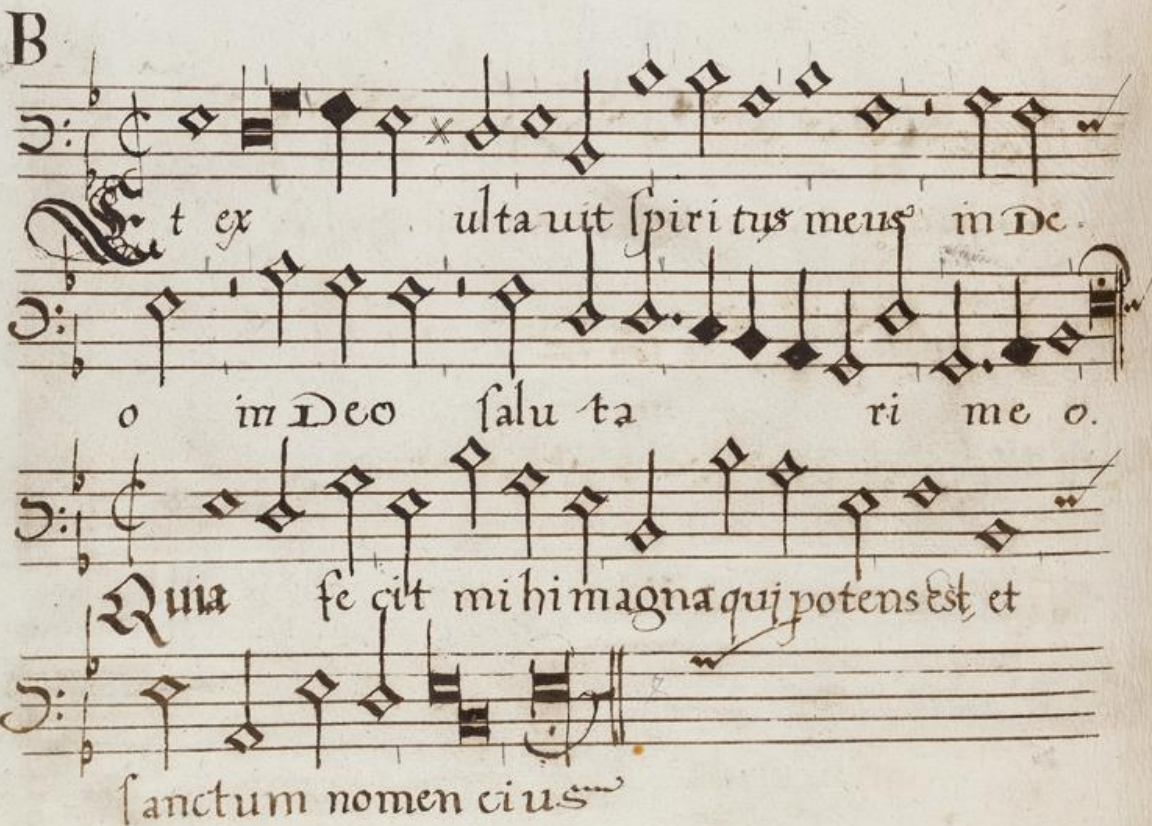 B
Et ex ultavit spiritus meus in De
o in Deo salu ta ri me o.
Quia fe cit mi hi magna qui potens est et
sanctum nomen eius